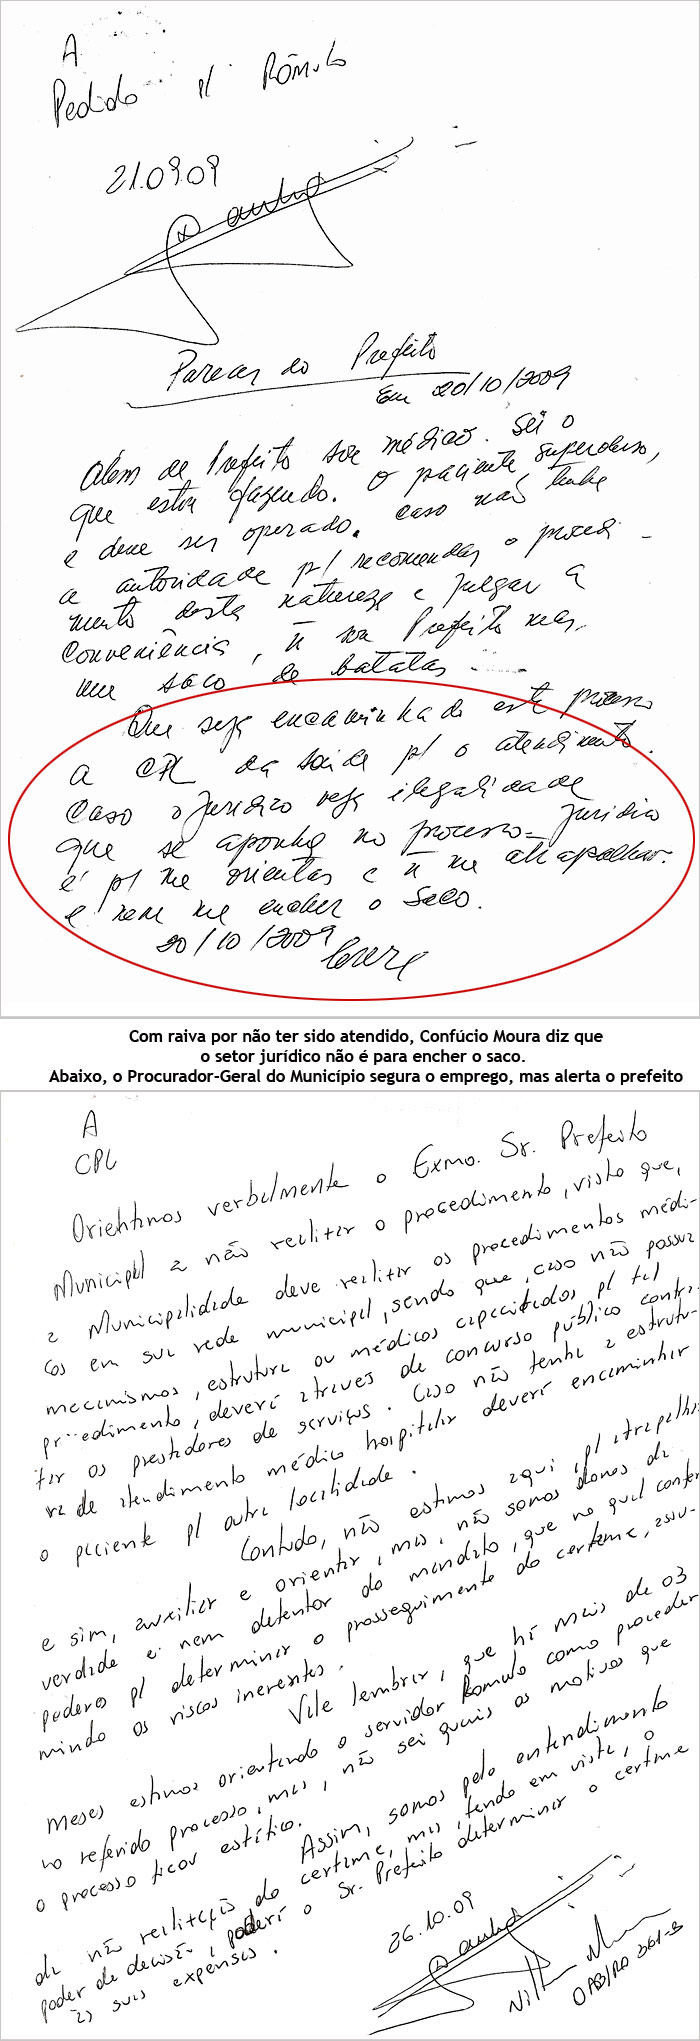 A
Pedido p/ Rômulo
21.09.09
Parecer do Prefeito
Em 20/10/2009
Além de Prefeito sou médico. Sei o
que estou fazendo. O paciente, superobeso,
e deve ser operado. Caso não tenha
a autoridade p/ recomendar o procedi-
mento desta natureza e julgar a
conveniência, ñ sou Prefeito mas,
um saco de batatas
Que seja encaminhado este processo
a CPL da saúde p/ o atendimento.
Caso o jurídico veja ilegalidade
que se aponha no processo - jurídico
é p/ me orientar e ñ me atrapalhar.
e nem me encher o saco.
20/10/2009
Com raiva por não ter sido atendido, Confúcio Moura diz que
o setor jurídico não é para encher o saco.
Abaixo, o Procurador-Geral do Município segura o emprego, mas alerta o prefeito
A
CPL
Orientamos verbalmente o Exmo. Sr. Prefeito
Municipal a não realizar o procedimento, visto que,
a Municipalidade deve realizar os procedimentos médi-
cos em sua rede municipal, sendo que, caso não possua
mecanismos, estrutura ou médicos capacitados p/ tal
procedimento, deverá através de concurso público contra-
tar os prestadores de serviços. Caso não tenha a estrutu-
ra de atendimento médico hospitalar deverá encaminhar
o paciente p/ outra localidade.
Contudo, não estamos aqui p/ atrapalhar
e sim, auxiliar e orientar, mas, não somos donos da
verdade e nem detentor do mandato, que no qual confere
poderes p/ determinar o prosseguimento do certame, assu-
mindo os riscos inerentes.
Vale lembrar, que há mais de 03
meses estamos orientando o servidor Romulo como proceder
no referido processo, mas, não sei quais os motivos que
o processo ficou estático.
Assim, somos pelo entendimento
da não realização do certame, mas, tendo em vista, o
poder de decisão, poderá o Sr. Prefeito determinar o certame
às suas expensas.
26.10.09